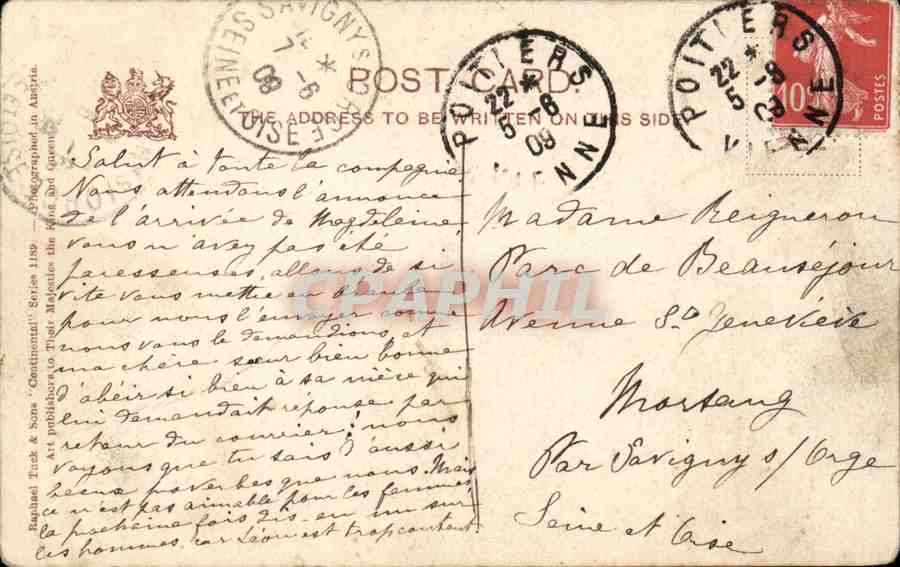 POST CARD.
THE ADDRESS TO BE WRITTEN ON THIS SIDE
Raphael Tuck & Sons "Continental" Series 1189. — Photographed in Austria.
Art publishers to Their Majesties the King and Queen.
SAVIGNY S ORGE
SEINE ET OISE
7 -6
09
POITIERS
VIENNE
22
5 -6
09
POITIERS
VIENNE
22
5 -6
09
10
POSTES
Salut à toute la compagnie
Nous attendons l'annonce
de l'arrivée de Magdeleine
vous n'avez pas été
paresseuses, allons de si
vite vous mettre en
pour nous l'envoyer comme
nous vous le demandions, et
ma chère sœur bien bonne
d'abéir si bien à sa nièce qui
lui demandait réponse par
retour du courrier; nous
voyons que tu sais d'aussi
beaux proverbes que nous. Mais
ce n'est pas aimable pour les femmes
la prochaine fois dis-en un sur
les hommes car Léon est trop content
Madame Reigneron
Parc de Beauséjour
Avenue Ste Geneviève
Morsang
Par Savigny s/ Orge
Seine et Oise
CPAPHIL